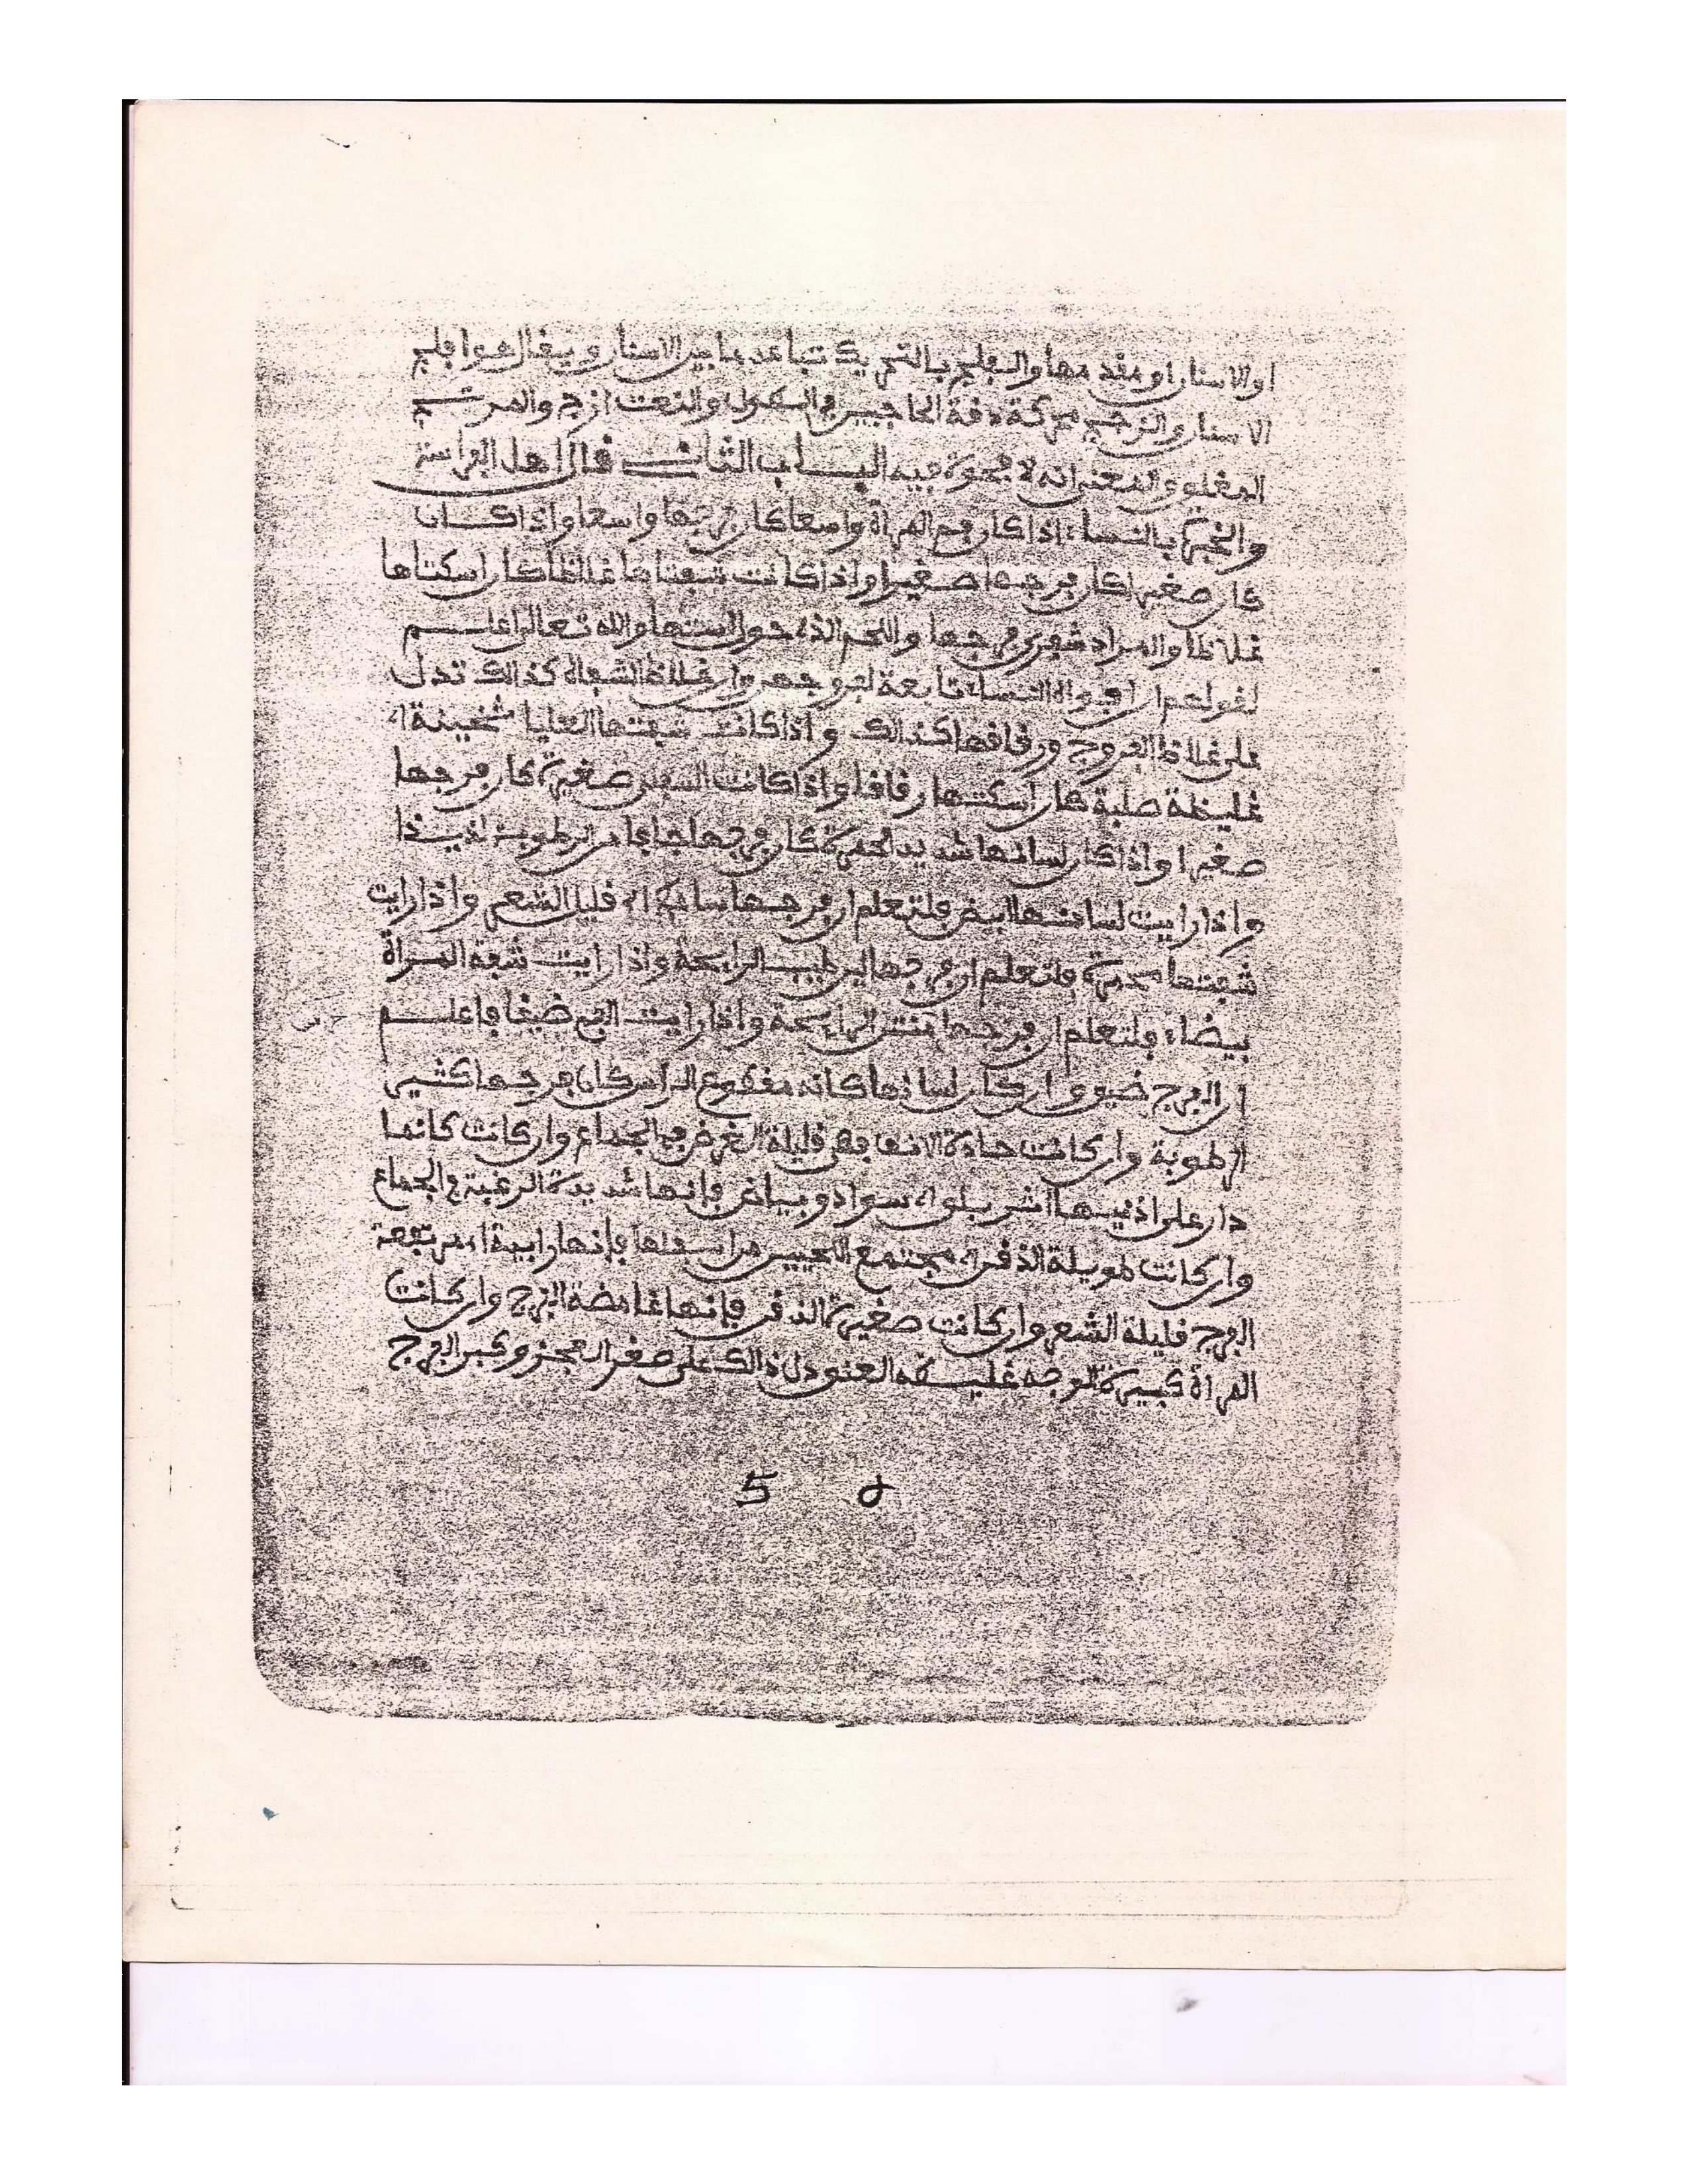 او الاسنان او مقدمها والفلج بالتحريك تباعد ما بين الاسنان ويقال هو افلج
الاسنان والزجج محركة دقة الحاجبين في الطول والنعت ازج والمرتج
المغلق والمعنى انه لا فجوة فيه الباب الثاني قال اهل الفراسة
والخبرة بالنساء اذا كان فم المرأة واسعا كان فرجها واسعا واذا كان
كان صغيرا كان فرجها صغيرا واذا كانت شفتاها غلاظا كان اسكتاها
غلاظا والمراد شفري فرجها واللحم الذي حول استها والله تعالى اعلم
لقولهم ان افواه النساء تابعة لفروجهن وان غلاظ الشفاه كذالك تدل
على غلاظ الفروج ورقاقها كذالك واذا كانت شفتها العليا ثخينة اي
غليظة صلبة كان اسكتها رقاقا واذا كانت السفلى صغيرة كان فرجها
صغيرا واذا كان لسانها شديد الحمرة كان فرجها جافا من الرطوبة لذيذا
واذا رايت لسانها ابيض فلتعلم ان فرجها قليل الشعر واذا رايت
شفتها محمرة فلتعلم ان فرجها لير طيب الرايحة واذا رايت شفة المرأة
بيضاء فلتعلم ان فرجها منتن الرايحة واذا رايت الفم ضيقا فاعلم
ان الفرج ضيق وان كان لسانها كانه مقطوع الراس كان فرجها كثير
الرطوبة وان كانت حادة الانف فهي قليلة الغرض في الجماع وان كانت كانما
دار على اذنيها اثر بلون سواد وبياض فإنها شديدة الرغبة في الجماع
وان كانت طويلة الذقن اي مجتمع اللحيين من اسفلها فإنها رابية اي مرتفعة
الفرج قليلة الشعر وان كانت صغيرة الذقن فإنها غامضة الفرج وان كانت
المرأة كبيرة الوجه غليظة العنق دل ذالك على صغر العجز وكبر الفرج
5